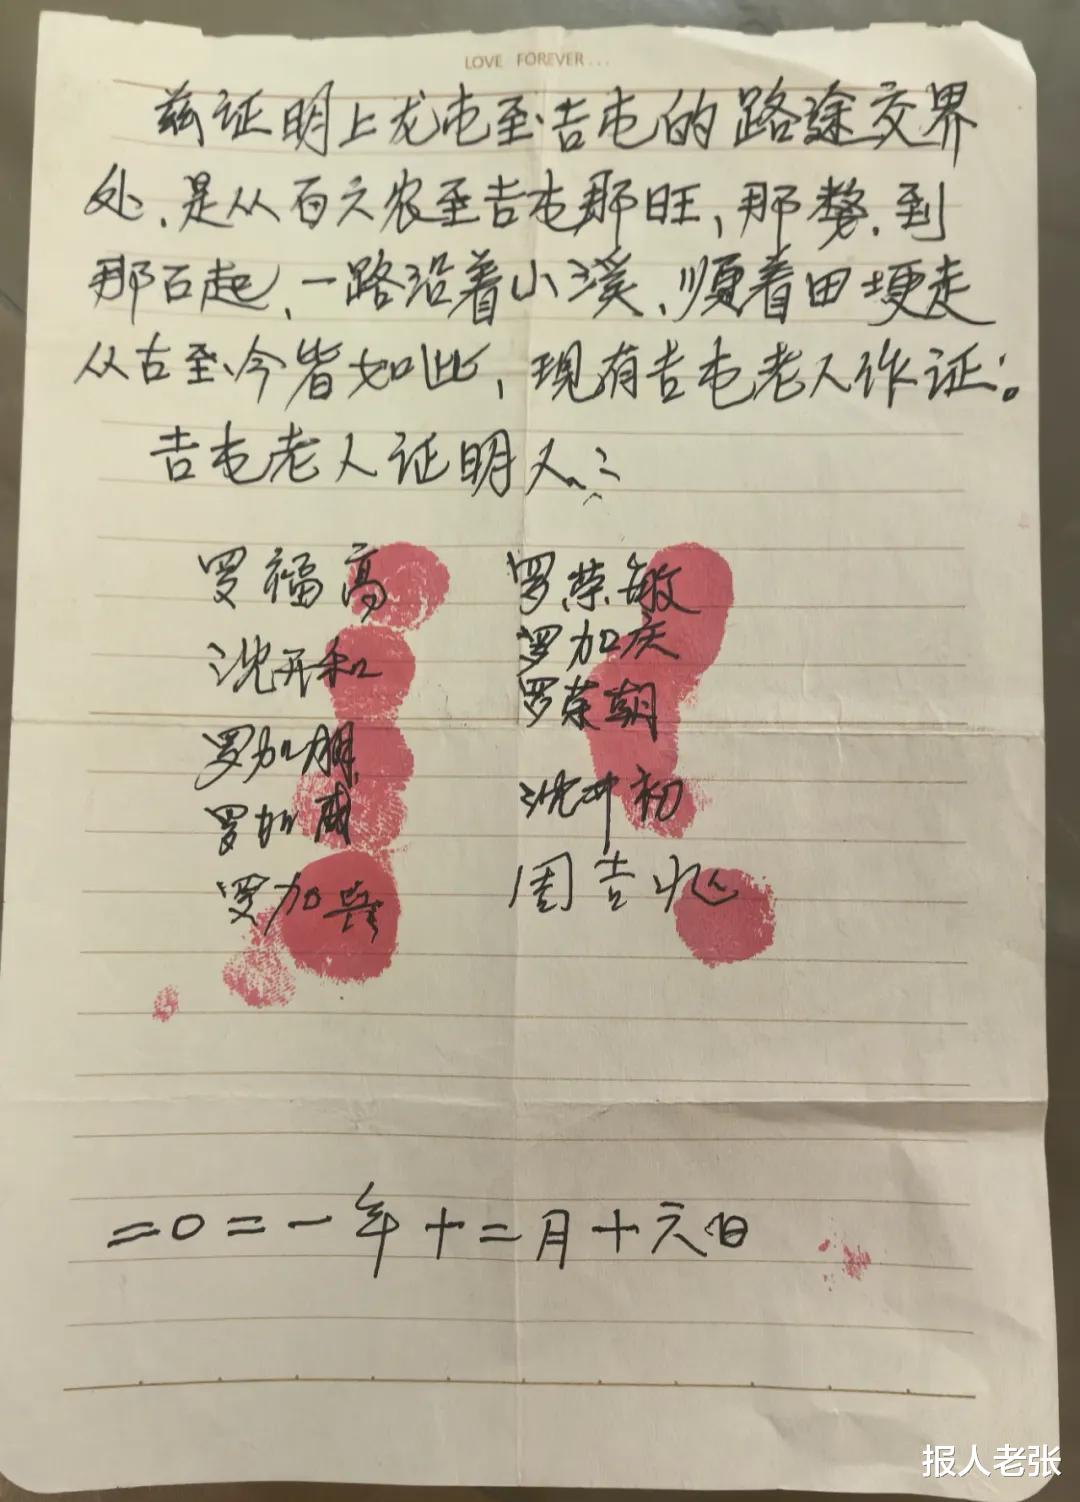 LOVE FOREVER...
兹证明上龙屯至吉屯的路途交界
处,是从百六农至吉屯那旺,那整,到
那百起,一路沿着小溪,顺着田埂走
从古至今皆如此,现有吉屯老人作证:。
吉屯老人证明人:
罗福高 罗荣敏
沈开和 罗加庆
罗加朋 罗荣朝
罗加威 沈冲初
罗加兴 周吉兆
二〇二一年十二月十六日
报人老张